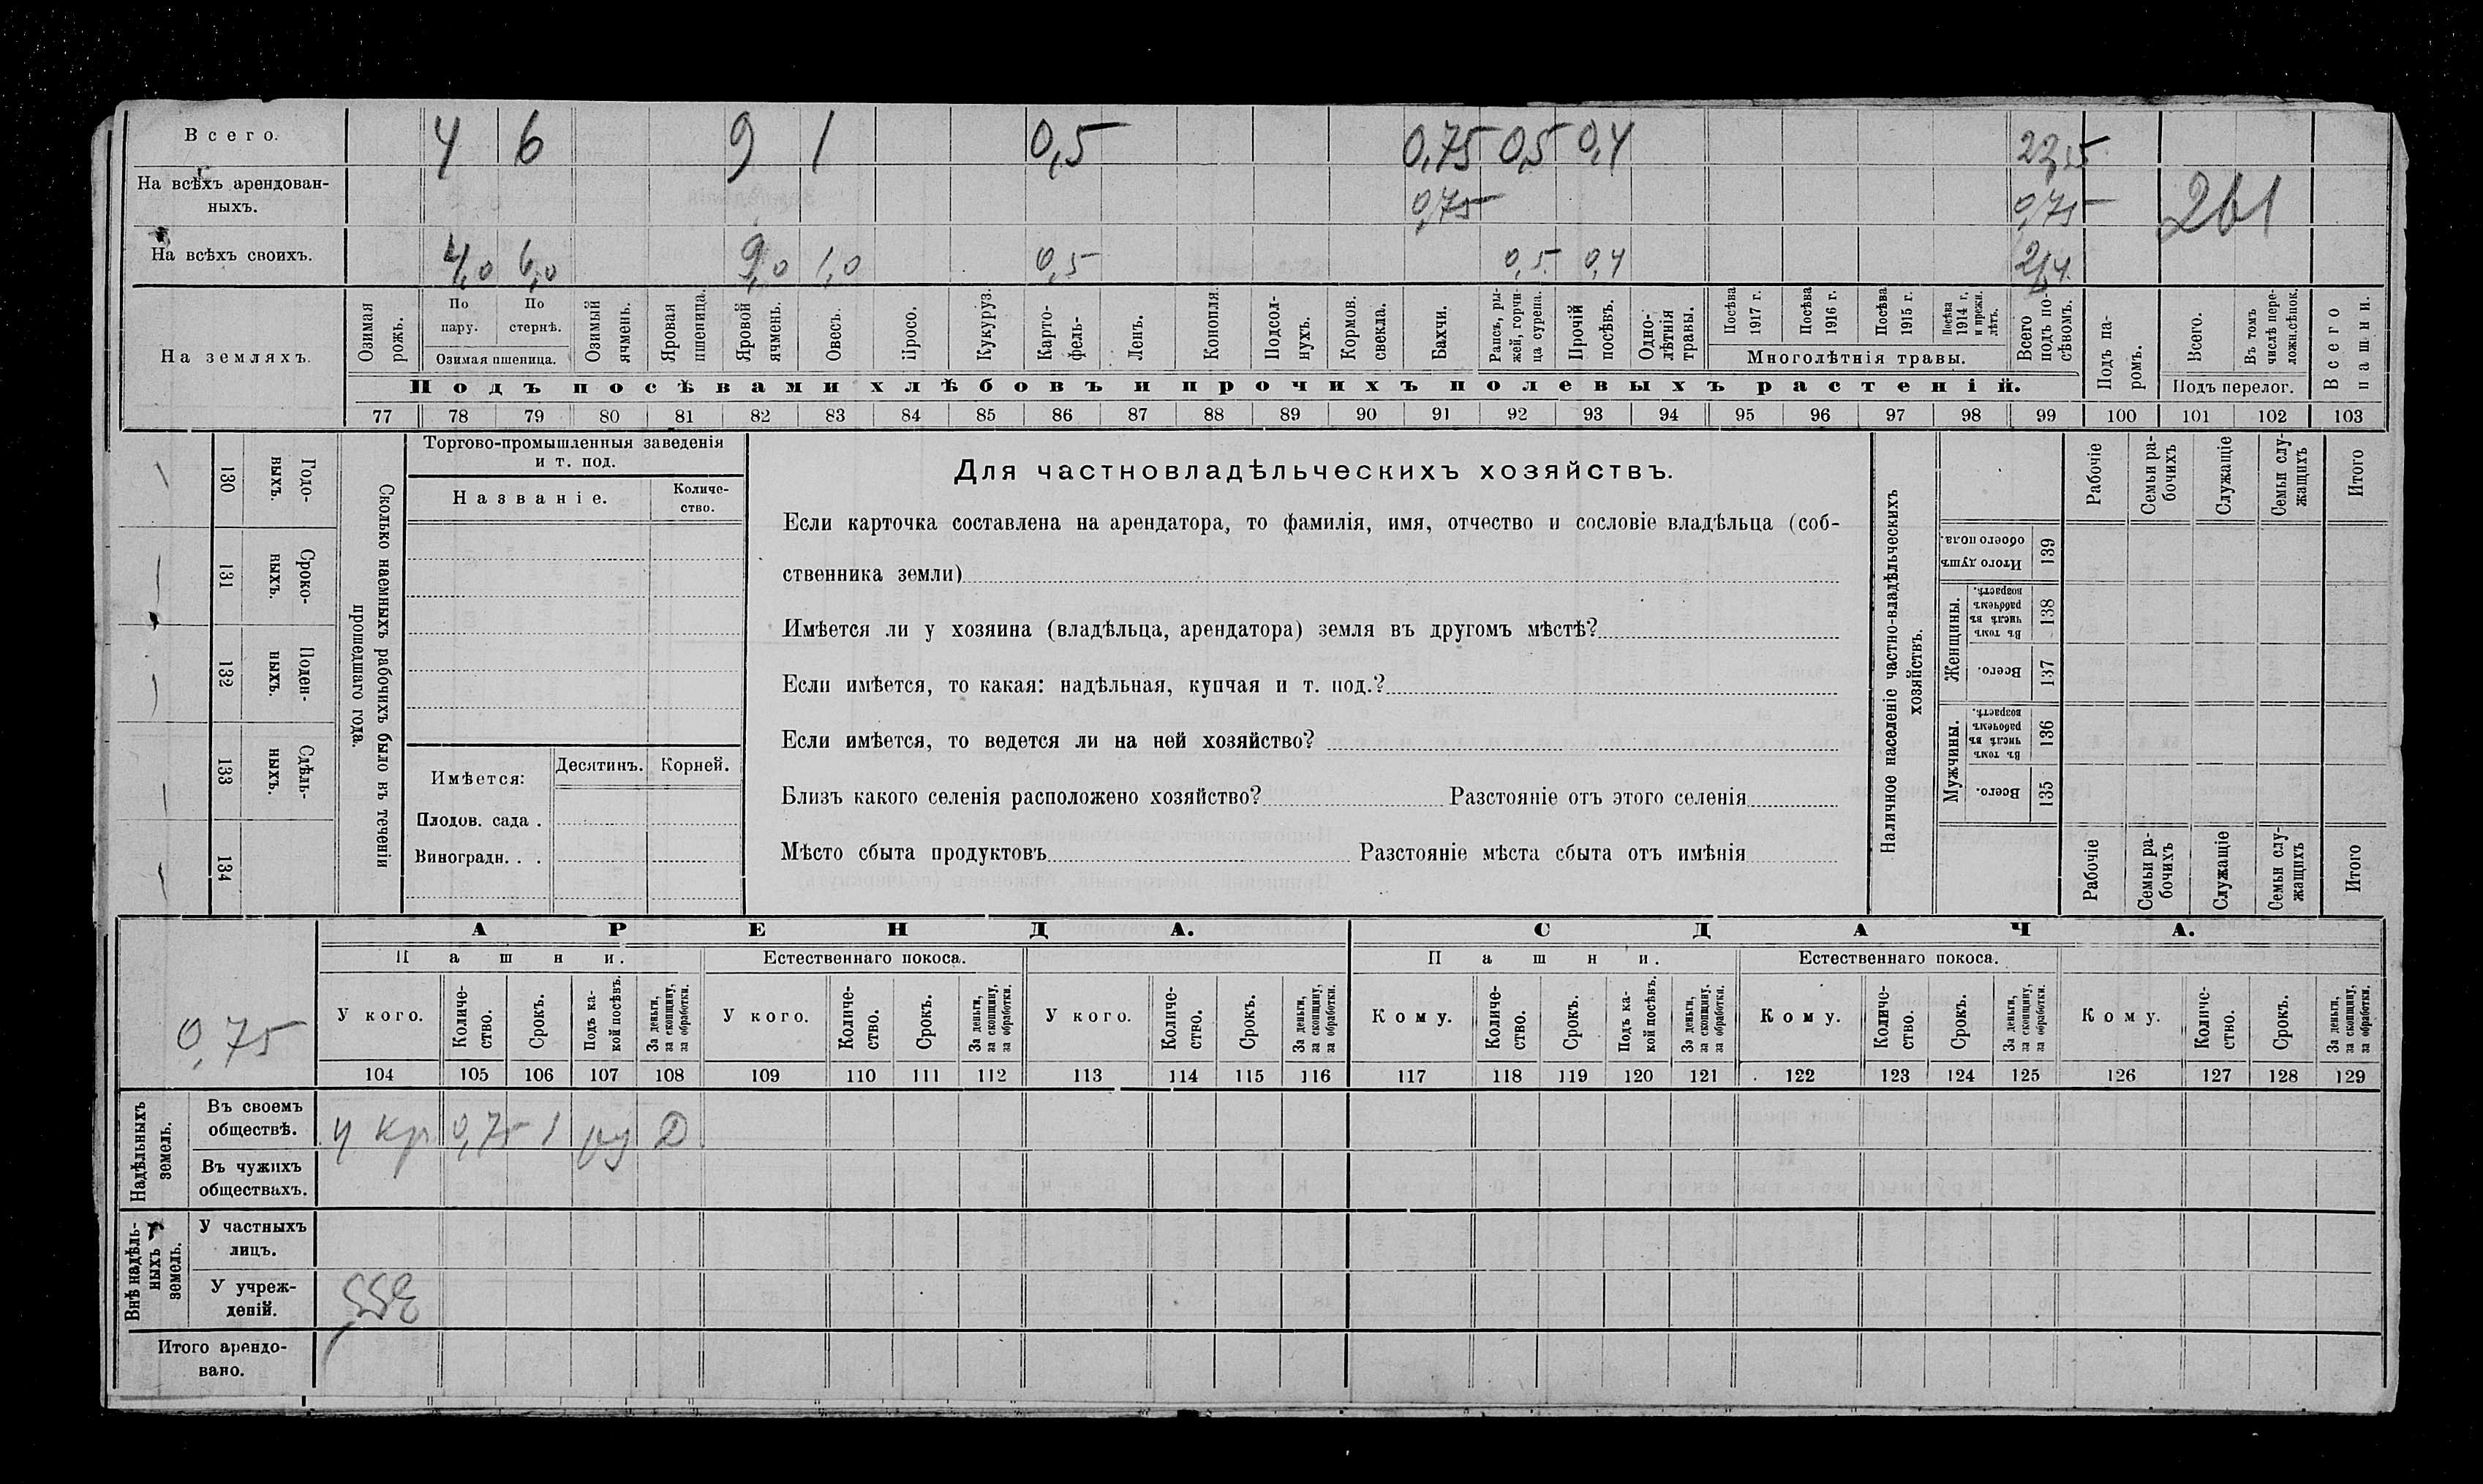 Всего. 4 6 9 1 0,5 0,75 0,5 0,4 22,15
На всѣхъ арендован-
ныхъ. 0,75 0,75
На всѣхъ своихъ. 4,0 6,0 9,0 1,0 0,5 0,5 0,4 21,4
261
На земляхъ.
Озимая рожь.
По пару.
По стернѣ.
Озимая пшеница.
Озимый ячмень.
Яровая пшеница.
Яровой ячмень.
Овесъ.
Просо.
Кукуруз.
Карто-
фель-
Ленъ.
Конопля.
Подсол-
нухъ.
Кормов.
свекла.
Бахчи.
Рапсъ, ры-
жей, горчи-
ца сурепа.
Прочій
посѣвъ.
Одно-
лѣтнія
травы.
Посѣва
1917 г.
Посѣва
1916 г.
Посѣва
1915 г.
Посѣва
1914 г.
и прежн.
лѣтъ.
Многолѣтнія травы.
Всего
подъ по-
сѣвомъ.
Подъ посѣвами хлѣбовъ и прочихъ полевыхъ растеній.
Подъ па-
ромъ.
Всего.
Въ томъ
числѣ пере-
ложн.сѣнок.
Подъ перелог.
Всего
пашни.
77 78 79 80 81 82 83 84 85 86 87 88 89 90 91 92 93 94 95 96 97 98 99 100 101 102 103
Годо-
выхъ.
130
Сроко-
ныхъ.
131
Поден-
ныхъ.
132
Сдѣль-
ныхъ.
133
134
Сколько наемныхъ рабочихъ было въ теченіи
прошедшаго года.
Торгово-промышленныя заведенія
и т. под.
Названіе.
Количе-
ство.
Имѣется:
Десятинъ.
Корней.
Плодов. сада .
Виноградн. . .
Для частновладѣльческихъ хозяйствъ.
Если карточка составлена на арендатора, то фамилія, имя, отчество и сословіе владѣльца (соб-
ственника земли)
Имѣется ли у хозяина (владѣльца, арендатора) земля въ другомъ мѣстѣ?
Если имѣется, то какая: надѣльная, купчая и т. под.?
Если имѣется, то ведется ли на ней хозяйство?
Близъ какого селенія расположено хозяйство? Разстояніе отъ этого селенія
Мѣсто сбыта продуктовъ Разстояніе мѣста сбыта отъ имѣнія
Наличное населеніе частно-владѣльческихъ
хозяйствъ.
Рабочіе
Семьи ра-
бочихъ
Служащіе
Семьи слу-
жащихъ
Итого
Итого душъ
обоего пола.
139
Женщины.
Въ томъ
числѣ въ
рабочемъ
возрастѣ.
138
Всего.
137
Мужчины.
Въ томъ
числѣ въ
рабочемъ
возрастѣ.
136
Всего.
135
Рабочіе
Семьи ра-
бочихъ
Служащіе
Семьи слу-
жащихъ
Итого
АРЕНДА.
СДАЧА.
Пашни.
Естественнаго покоса.
Пашни.
Естественнаго покоса.
0,75
У кого.
Количе-
ство.
Срокъ.
Подъ ка-
кой посѣвъ.
За деньги,
за скопщину,
за обработки.
У кого.
Количе-
ство.
Срокъ.
За деньги,
за скопщину,
за обработки.
У кого.
Количе-
ство.
Срокъ.
За деньги,
за скопщину,
за обработки.
Кому.
Количе-
ство.
Срокъ.
Подъ ка-
кой посѣвъ.
За деньги,
за скопщину,
за обработки.
Кому.
Количе-
ство.
Срокъ.
За деньги,
за скопщину,
за обработки.
Кому.
Количе-
ство.
Срокъ.
За деньги,
за скопщину,
за обработки.
104 105 106 107 108 109 110 111 112 113 114 115 116 117 118 119 120 121 122 123 124 125 126 127 128 129
Надѣльныхъ
земель.
Въ своемъ
обществѣ.
у кр 0,75 1 Д
Въ чужихъ
обществахъ.
Внѣ надѣль-
ныхъ
земель.
У частныхъ
лицъ.
У учреж-
деній.
Итого арендо-
вано.